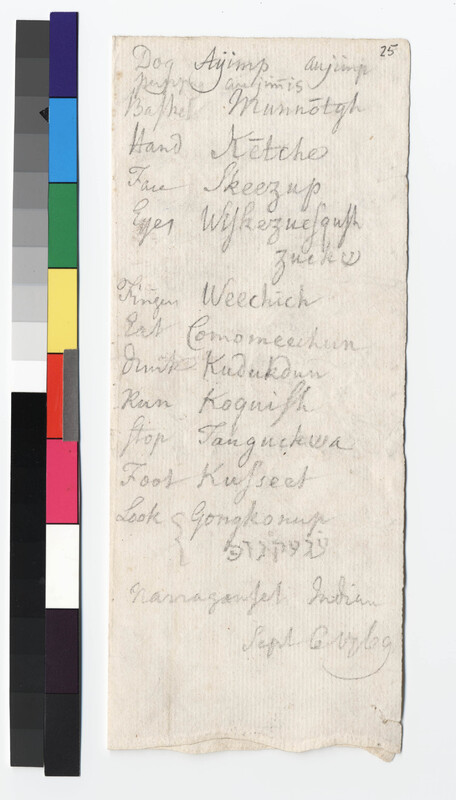 25
Dog Ayimp aujimp
puppe aujimis
Baſket Munnōtgh
Hand Kētche
Face Skeezup
Eyes Wiſkezueſquſh
zucke
Fingers Weechich
Eat Comomeechun
drink Kudukdun
Run Koquiſh
ſtop Tanguckwa
Foot Kuſseet
Look { Gongkonup
Narraganſet Indian
Sept 6 1769